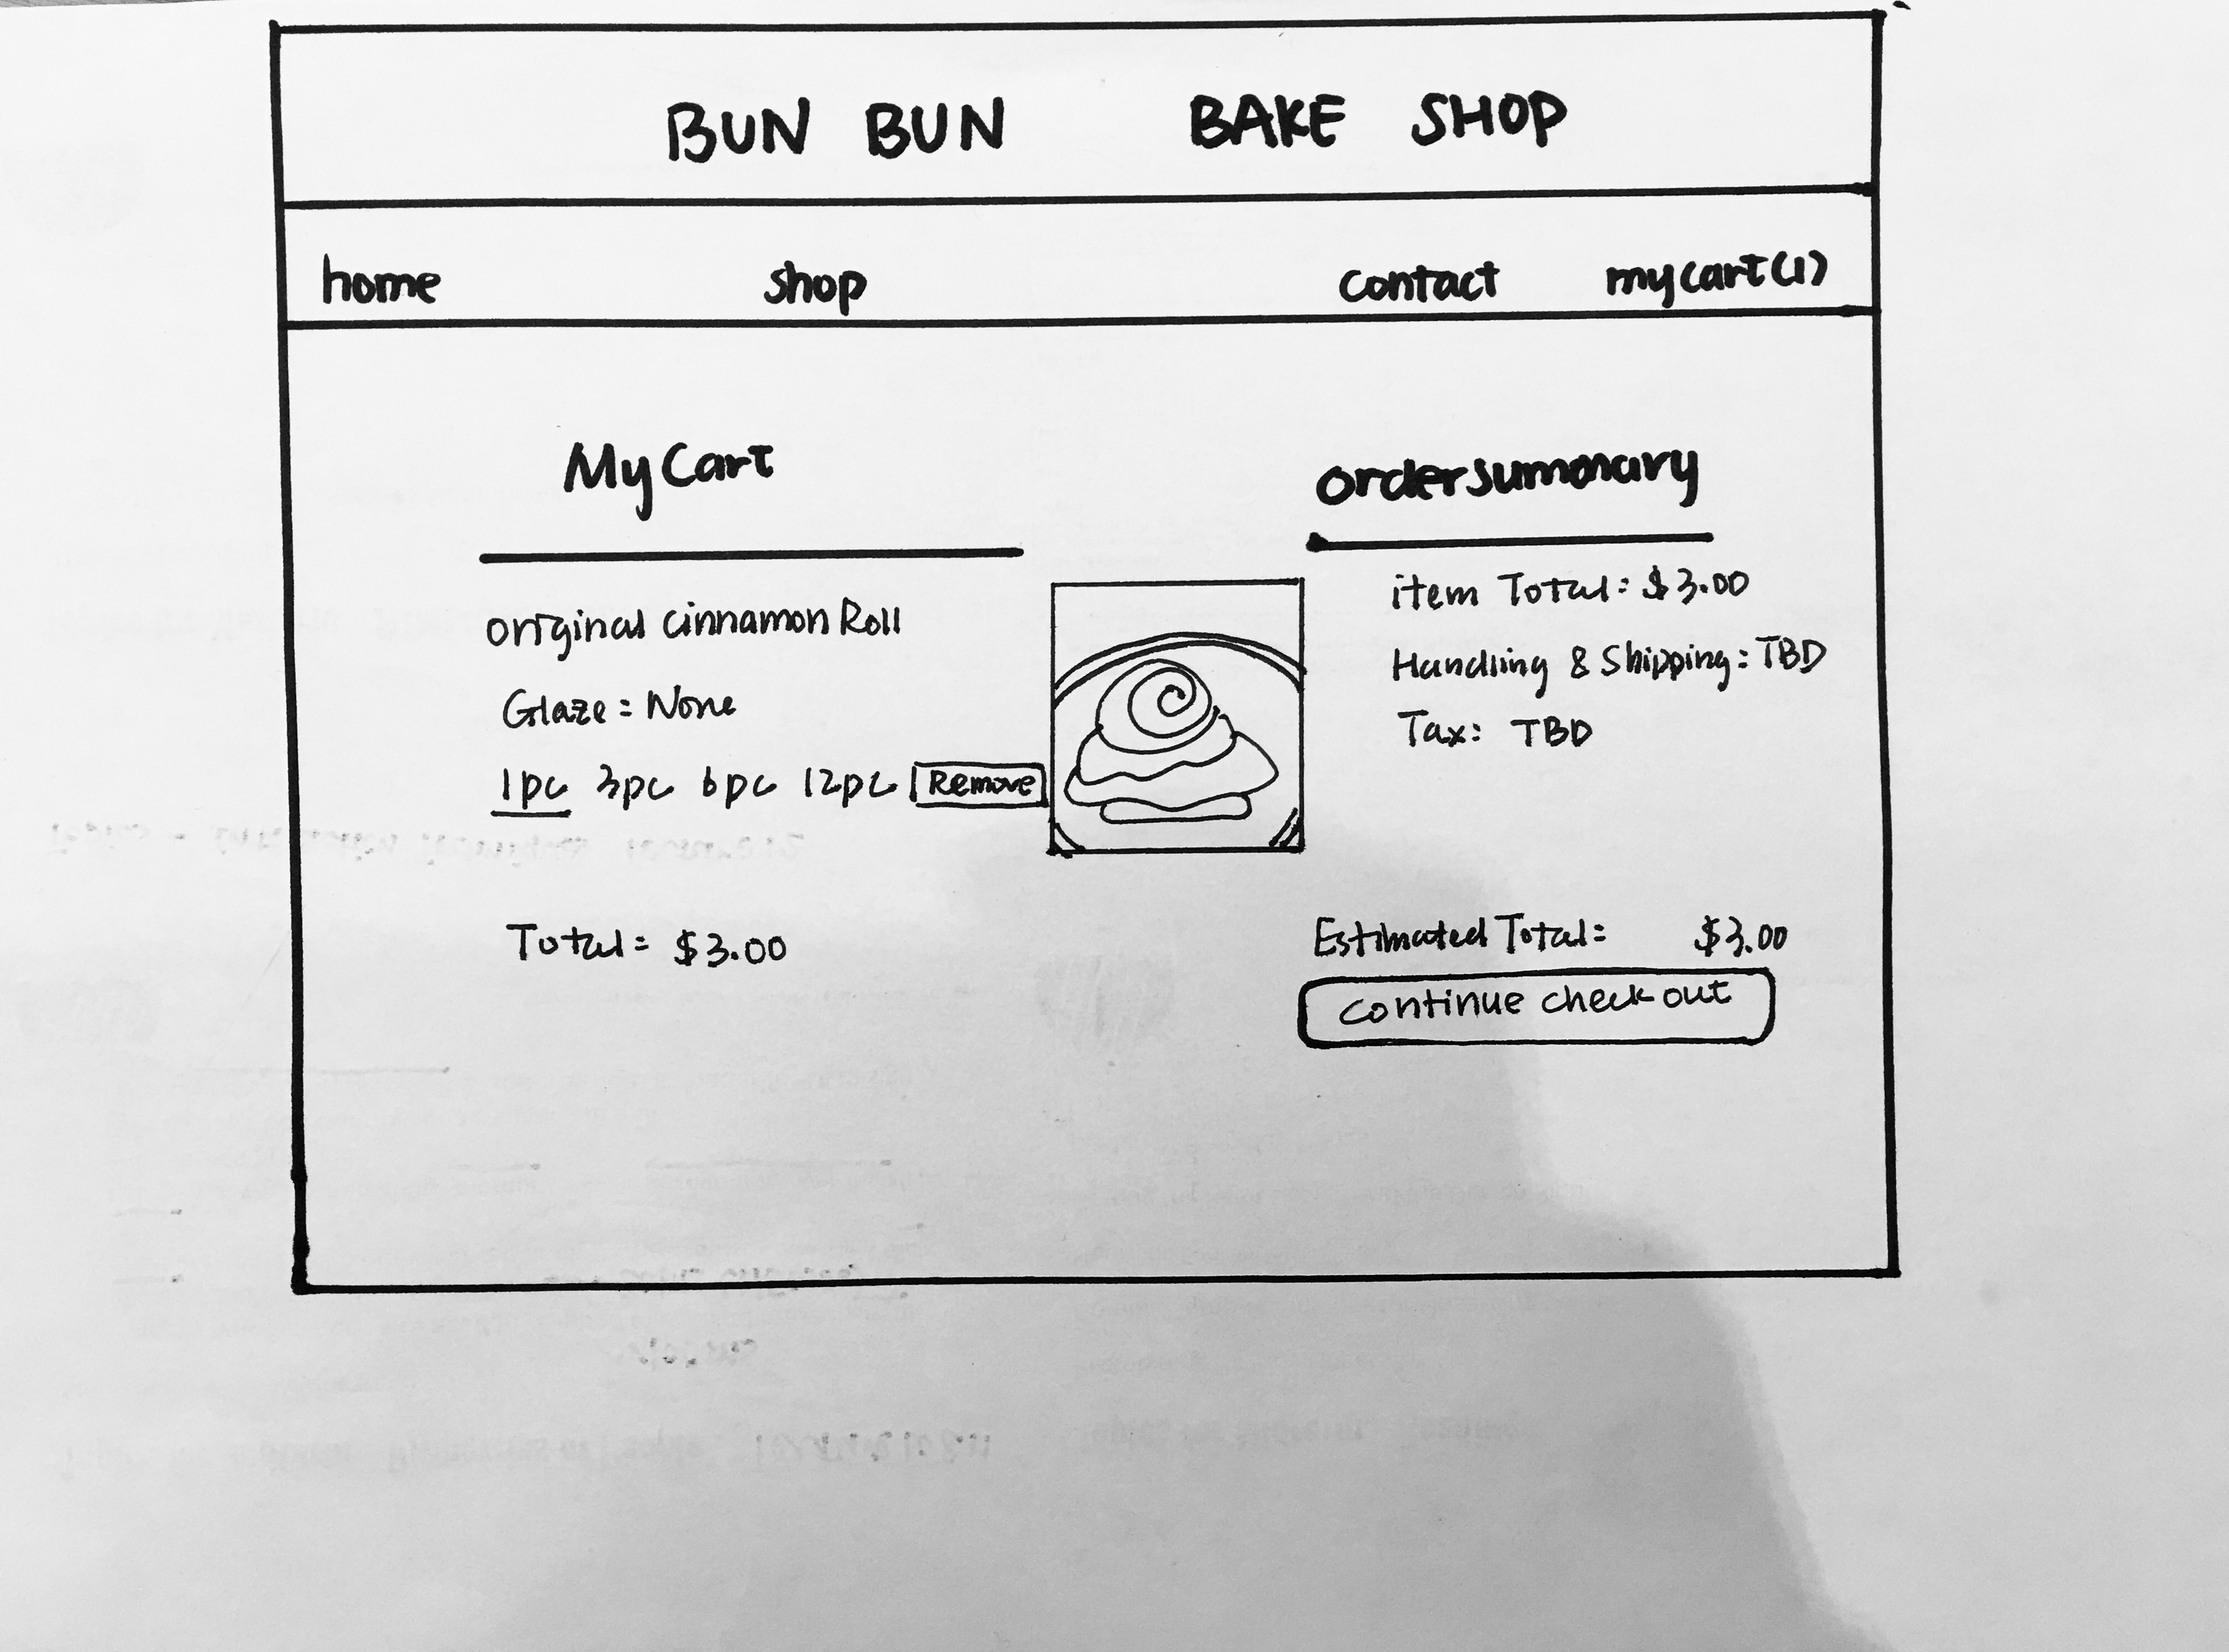 BUN BUN BAKE SHOP
home shop contact my cart (1)
My Cart
order summary
original cinnamon Roll
Glaze: None
1pc 3pc 6pc 12pc Remove
Total: $3.00
item Total: $3.00
Handling & Shipping: TBD
Tax: TBD
Estimated Total: $3.00
continue check out